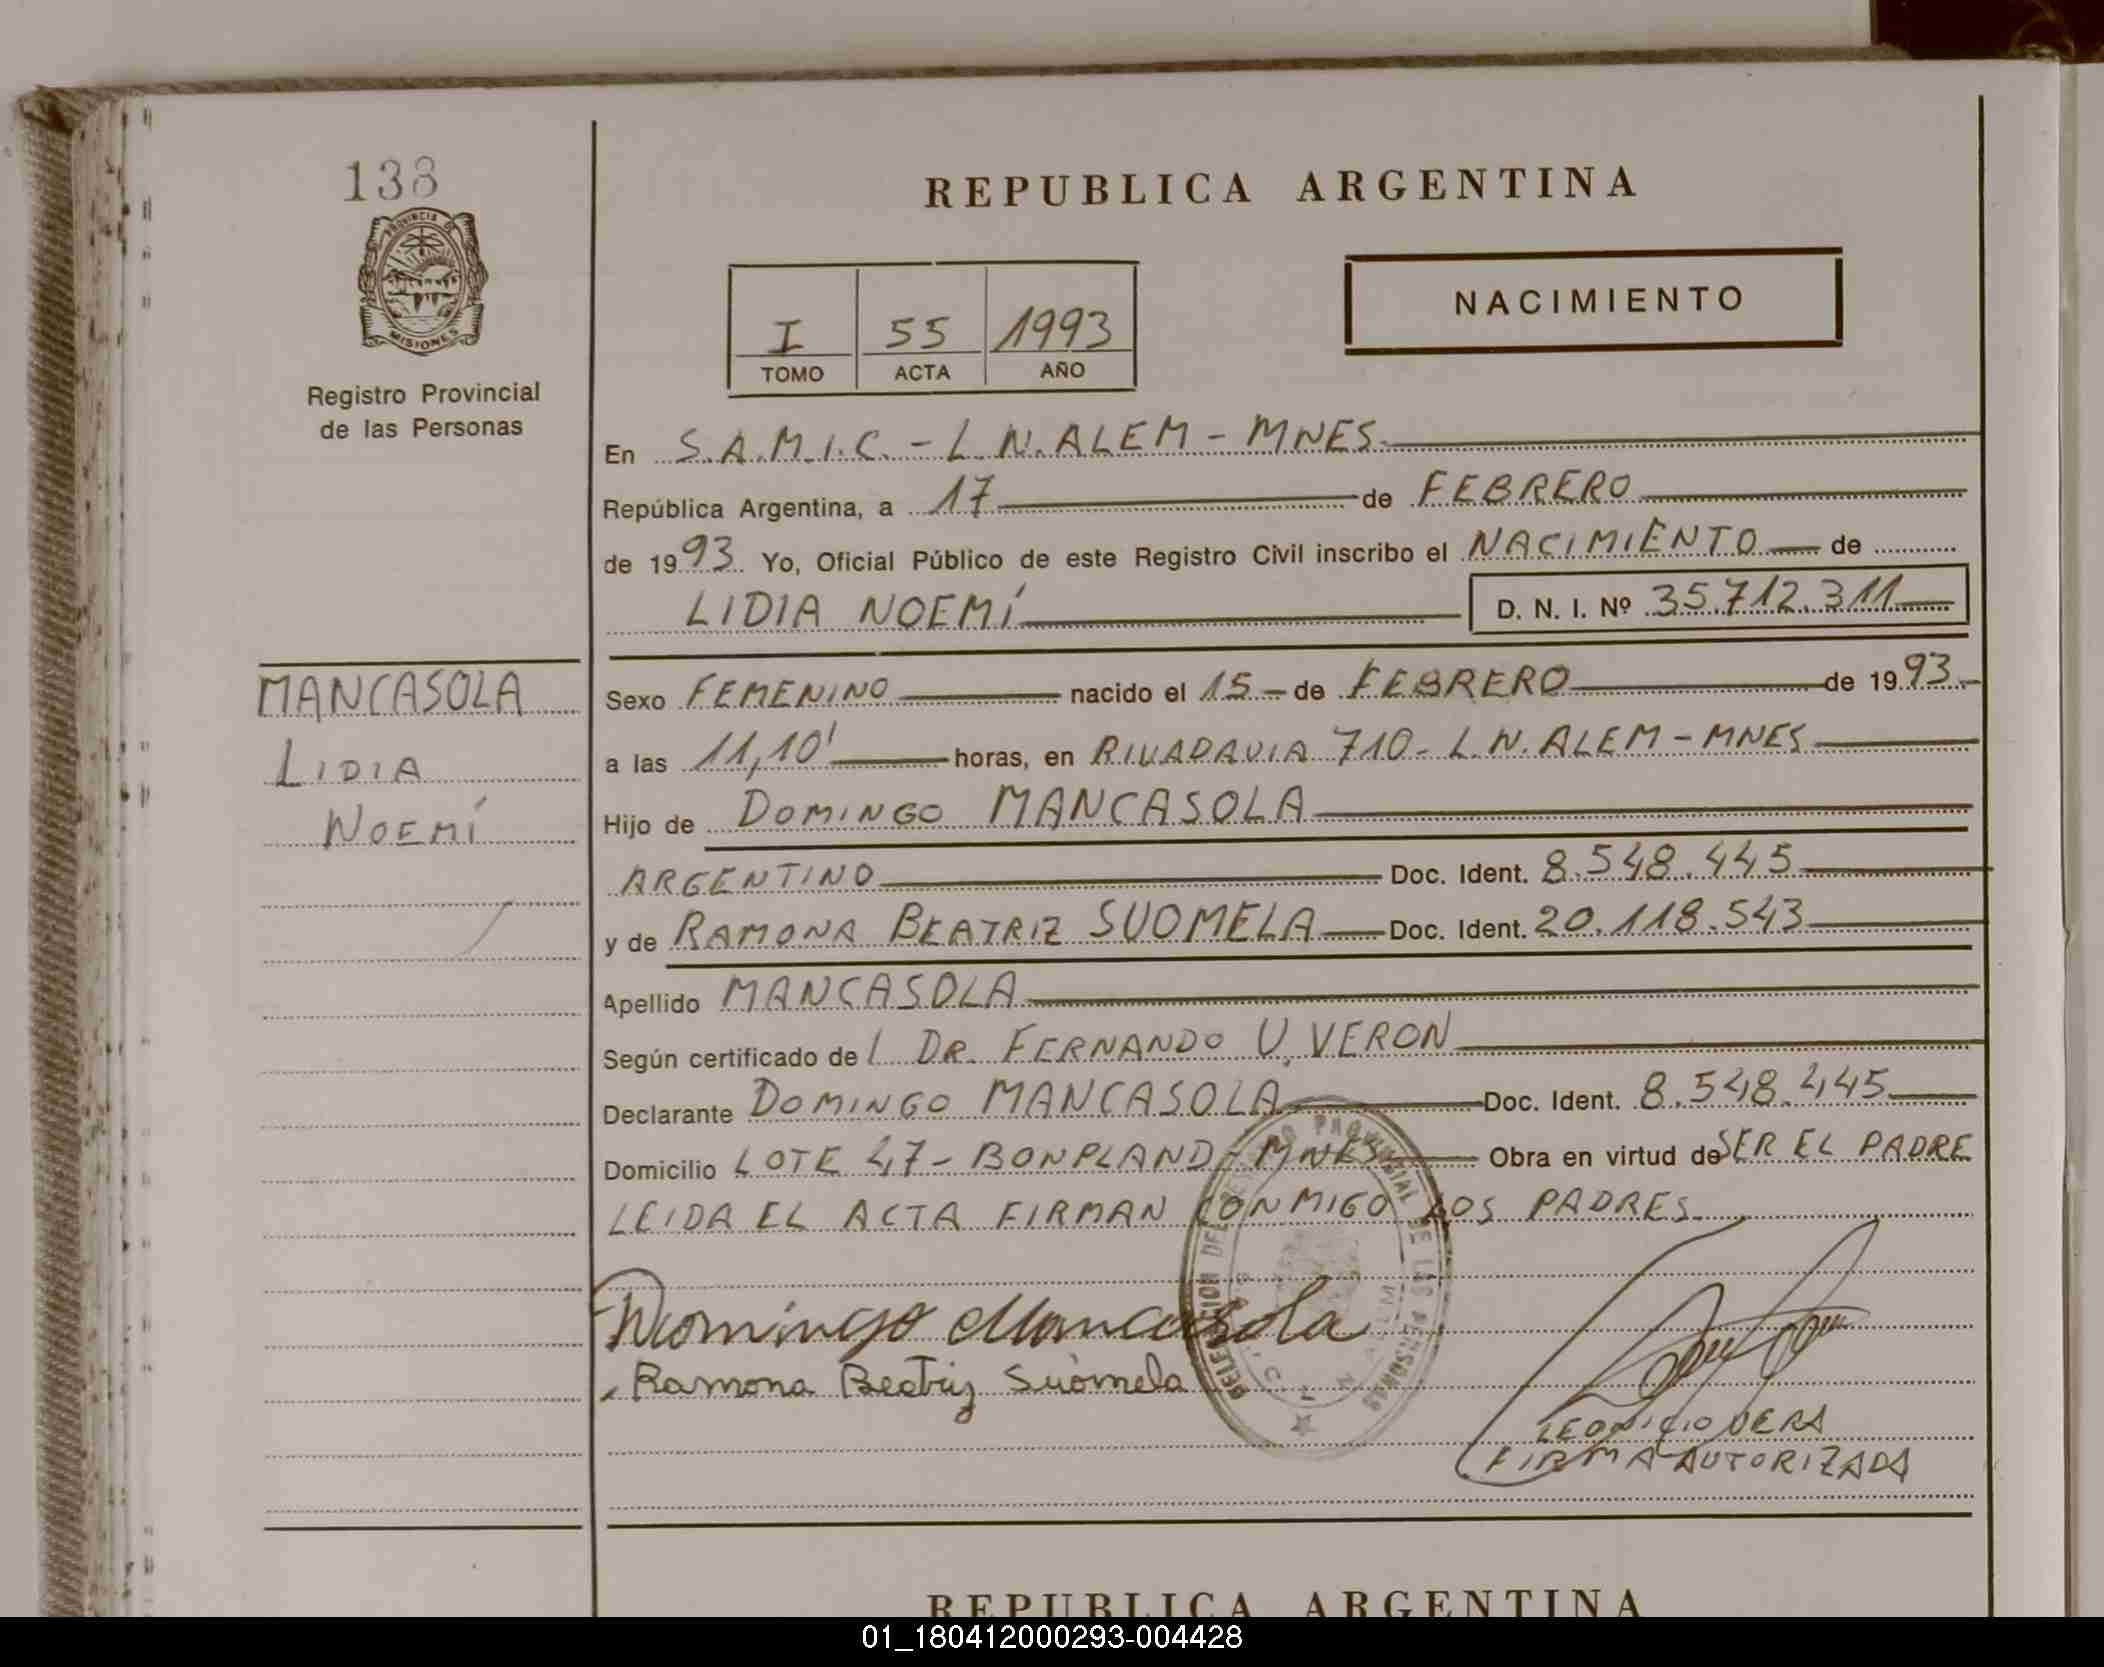 138
PROVINCIA DE
MISIONES
Registro Provincial
de las Personas
MANCASOLA
LIDIA
NOEMÍ
REPUBLICA ARGENTINA
I 55 1993
TOMO ACTA AÑO
NACIMIENTO
En S.A.M.I.C. - L.N. ALEM - MNES.
República Argentina, a 17 de FEBRERO
de 1993. Yo, Oficial Público de este Registro Civil inscribo el NACIMIENTO de
LIDIA NOEMÍ D. N. I. Nº 35.712.311
Sexo FEMENINO nacido el 15 de FEBRERO de 1993.
a las 11,10' horas, en RIVADAVIA 710 - L.N. ALEM - MNES
Hijo de DOMINGO MANCASOLA
ARGENTINO Doc. Ident. 8.548.445
y de RAMONA BEATRIZ SUOMELA Doc. Ident. 20.118.543
Apellido MANCASOLA
Según certificado de l DR. FERNANDO U. VERON
Declarante DOMINGO MANCASOLA Doc. Ident. 8.548.445
Domicilio LOTE 47 - BONPLAND - MNES Obra en virtud de SER EL PADRE
LEIDA EL ACTA FIRMAN CONMIGO LOS PADRES
Domingo Mancasola
Ramona Beatriz Suomela
DELEGACION DEL REGISTRO PROVINCIAL DE LAS PERSONAS
L. N. ALEM
LEONICIO VERA
FIRMA AUTORIZADA
REPUBLICA ARGENTINA
01_180412000293-004428